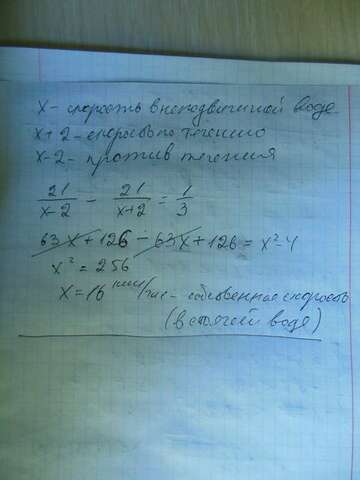 x - скорость в неподвижной воде
x+2 - скорость по течению
x-2 - против течения
21/(x-2) - 21/(x+2) = 1/3
63x + 126 - 63x + 126 = x² - 4
x² = 256
x = 16 км/час - собственная скорость
(в стоячей воде)